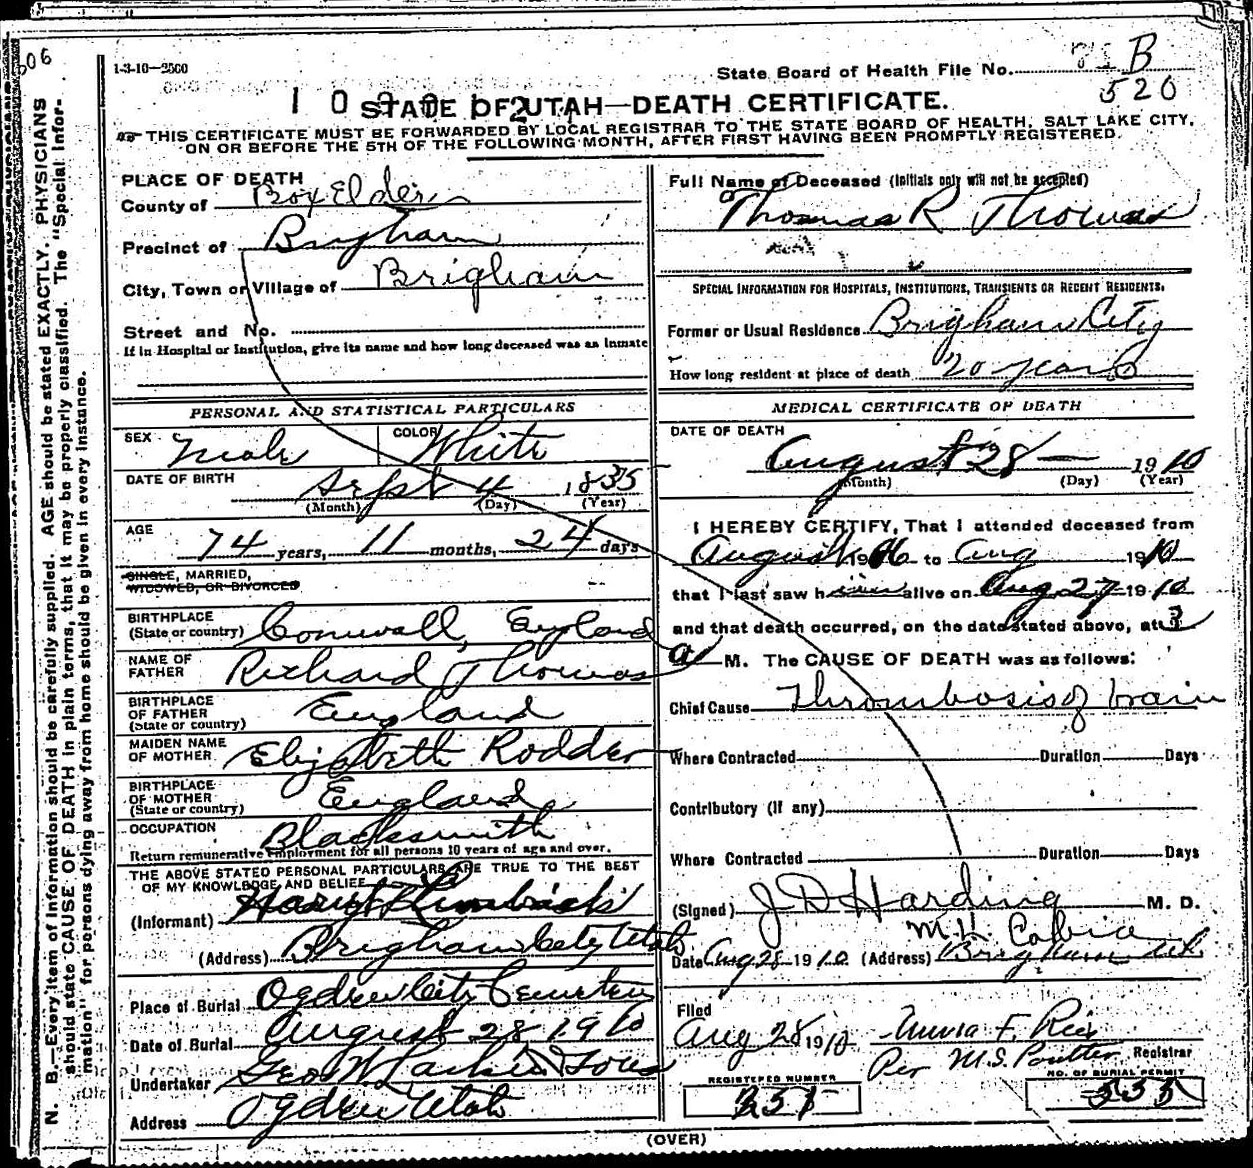 1-3-10—2500
State Board of Health File No. B
520
STATE OF UTAH—DEATH CERTIFICATE.
THIS CERTIFICATE MUST BE FORWARDED BY LOCAL REGISTRAR TO THE STATE BOARD OF HEALTH, SALT LAKE CITY,
ON OR BEFORE THE 5TH OF THE FOLLOWING MONTH, AFTER FIRST HAVING BEEN PROMPTLY REGISTERED.
N. B.—Every item of information should be carefully supplied. AGE should be stated EXACTLY. PHYSICIANS
should state CAUSE OF DEATH in plain terms, that it may be properly classified. The "Special Infor-
mation" for persons dying away from home should be given in every instance.
PLACE OF DEATH
County of Box Elder
Precinct of Brigham
City, Town or Village of Brigham
Street and No.
If in Hospital or Institution, give its name and how long deceased was an inmate
PERSONAL AND STATISTICAL PARTICULARS
SEX Male COLOR White
DATE OF BIRTH Sept 4 1835
(Month) (Day) (Year)
AGE 74 years, 11 months, 24 days
SINGLE, MARRIED,
WIDOWED, OR DIVORCED
BIRTHPLACE
(State or country) Cornwall, England
NAME OF
FATHER Richard Thomas
BIRTHPLACE
OF FATHER
(State or country) England
MAIDEN NAME
OF MOTHER Elizabeth Rodder
BIRTHPLACE
OF MOTHER
(State or country) England
OCCUPATION Blacksmith
Return remunerative employment for all persons 10 years of age and over.
THE ABOVE STATED PERSONAL PARTICULARS ARE TRUE TO THE BEST
OF MY KNOWLEDGE AND BELIEF
(Informant)
(Address) Brigham City Utah
Place of Burial Ogden City Cemetery
Date of Burial August 28 1910
Undertaker Geo W Larkin & Sons
Address Ogden Utah
Full Name of Deceased (Initials only will not be accepted)
Thomas R Thomas
SPECIAL INFORMATION FOR HOSPITALS, INSTITUTIONS, TRANSIENTS OR RECENT RESIDENTS.
Former or Usual Residence Brigham City
How long resident at place of death 20 years
MEDICAL CERTIFICATE OF DEATH
DATE OF DEATH
August 28 — 1910
(Month) (Day) (Year)
I HEREBY CERTIFY, That I attended deceased from
August 1906 to Aug 1910
that I last saw him alive on Aug 27 1910
and that death occurred, on the date stated above, at 3
a M. The CAUSE OF DEATH was as follows:
Chief Cause Thrombosis of brain
Where Contracted Duration Days
Contributory (if any)
Where Contracted Duration Days
(Signed) J D Harding M. D.
Date Aug 28 1910 (Address) Brigham
Filed
Aug 28 1910
Per M.S. Registrar
REGISTERED NUMBER
NO. OF BURIAL PERMIT
(OVER)